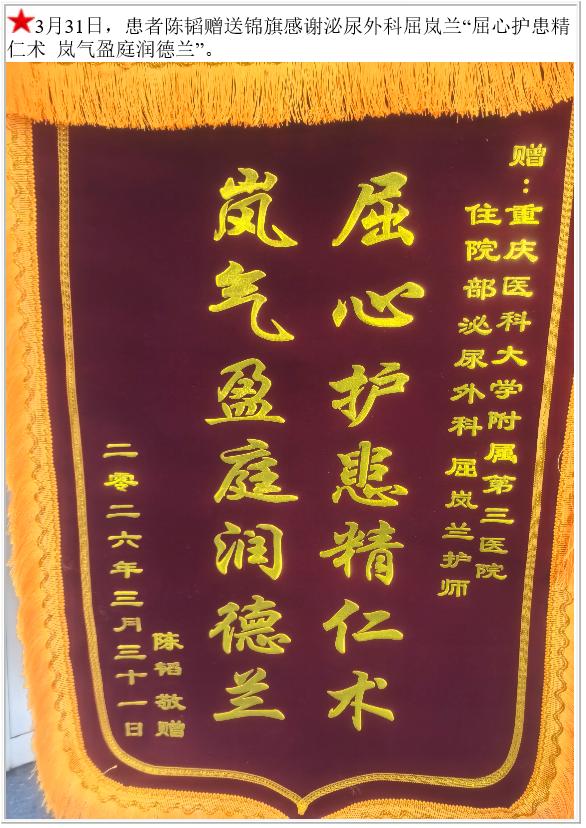 ★3月31日，患者陈韬赠送锦旗感谢泌尿外科屈岚兰“屈心护患精
仁术 岚气盈庭润德兰”。
赠：重庆医科大学附属第三医院
住院部泌尿外科 屈岚兰护师
屈心护患精仁术
岚气盈庭润德兰
陈韬 敬赠
二零二六年三月三十一日